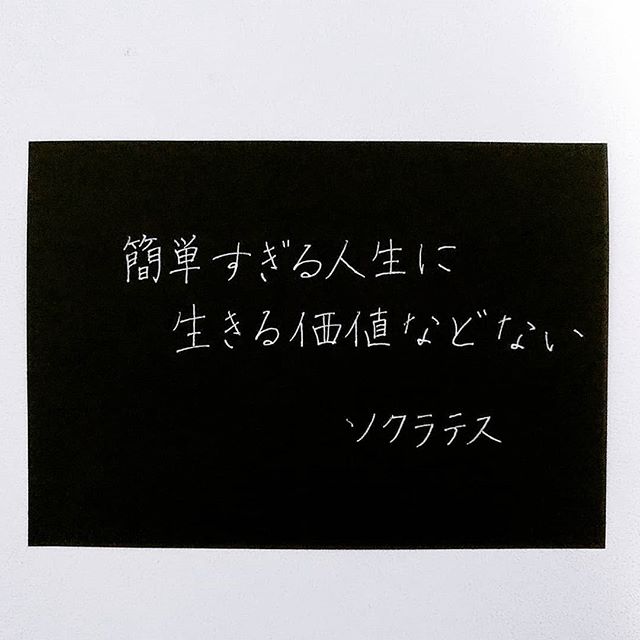 簡単すぎる人生に
生きる価値などない
ソクラテス